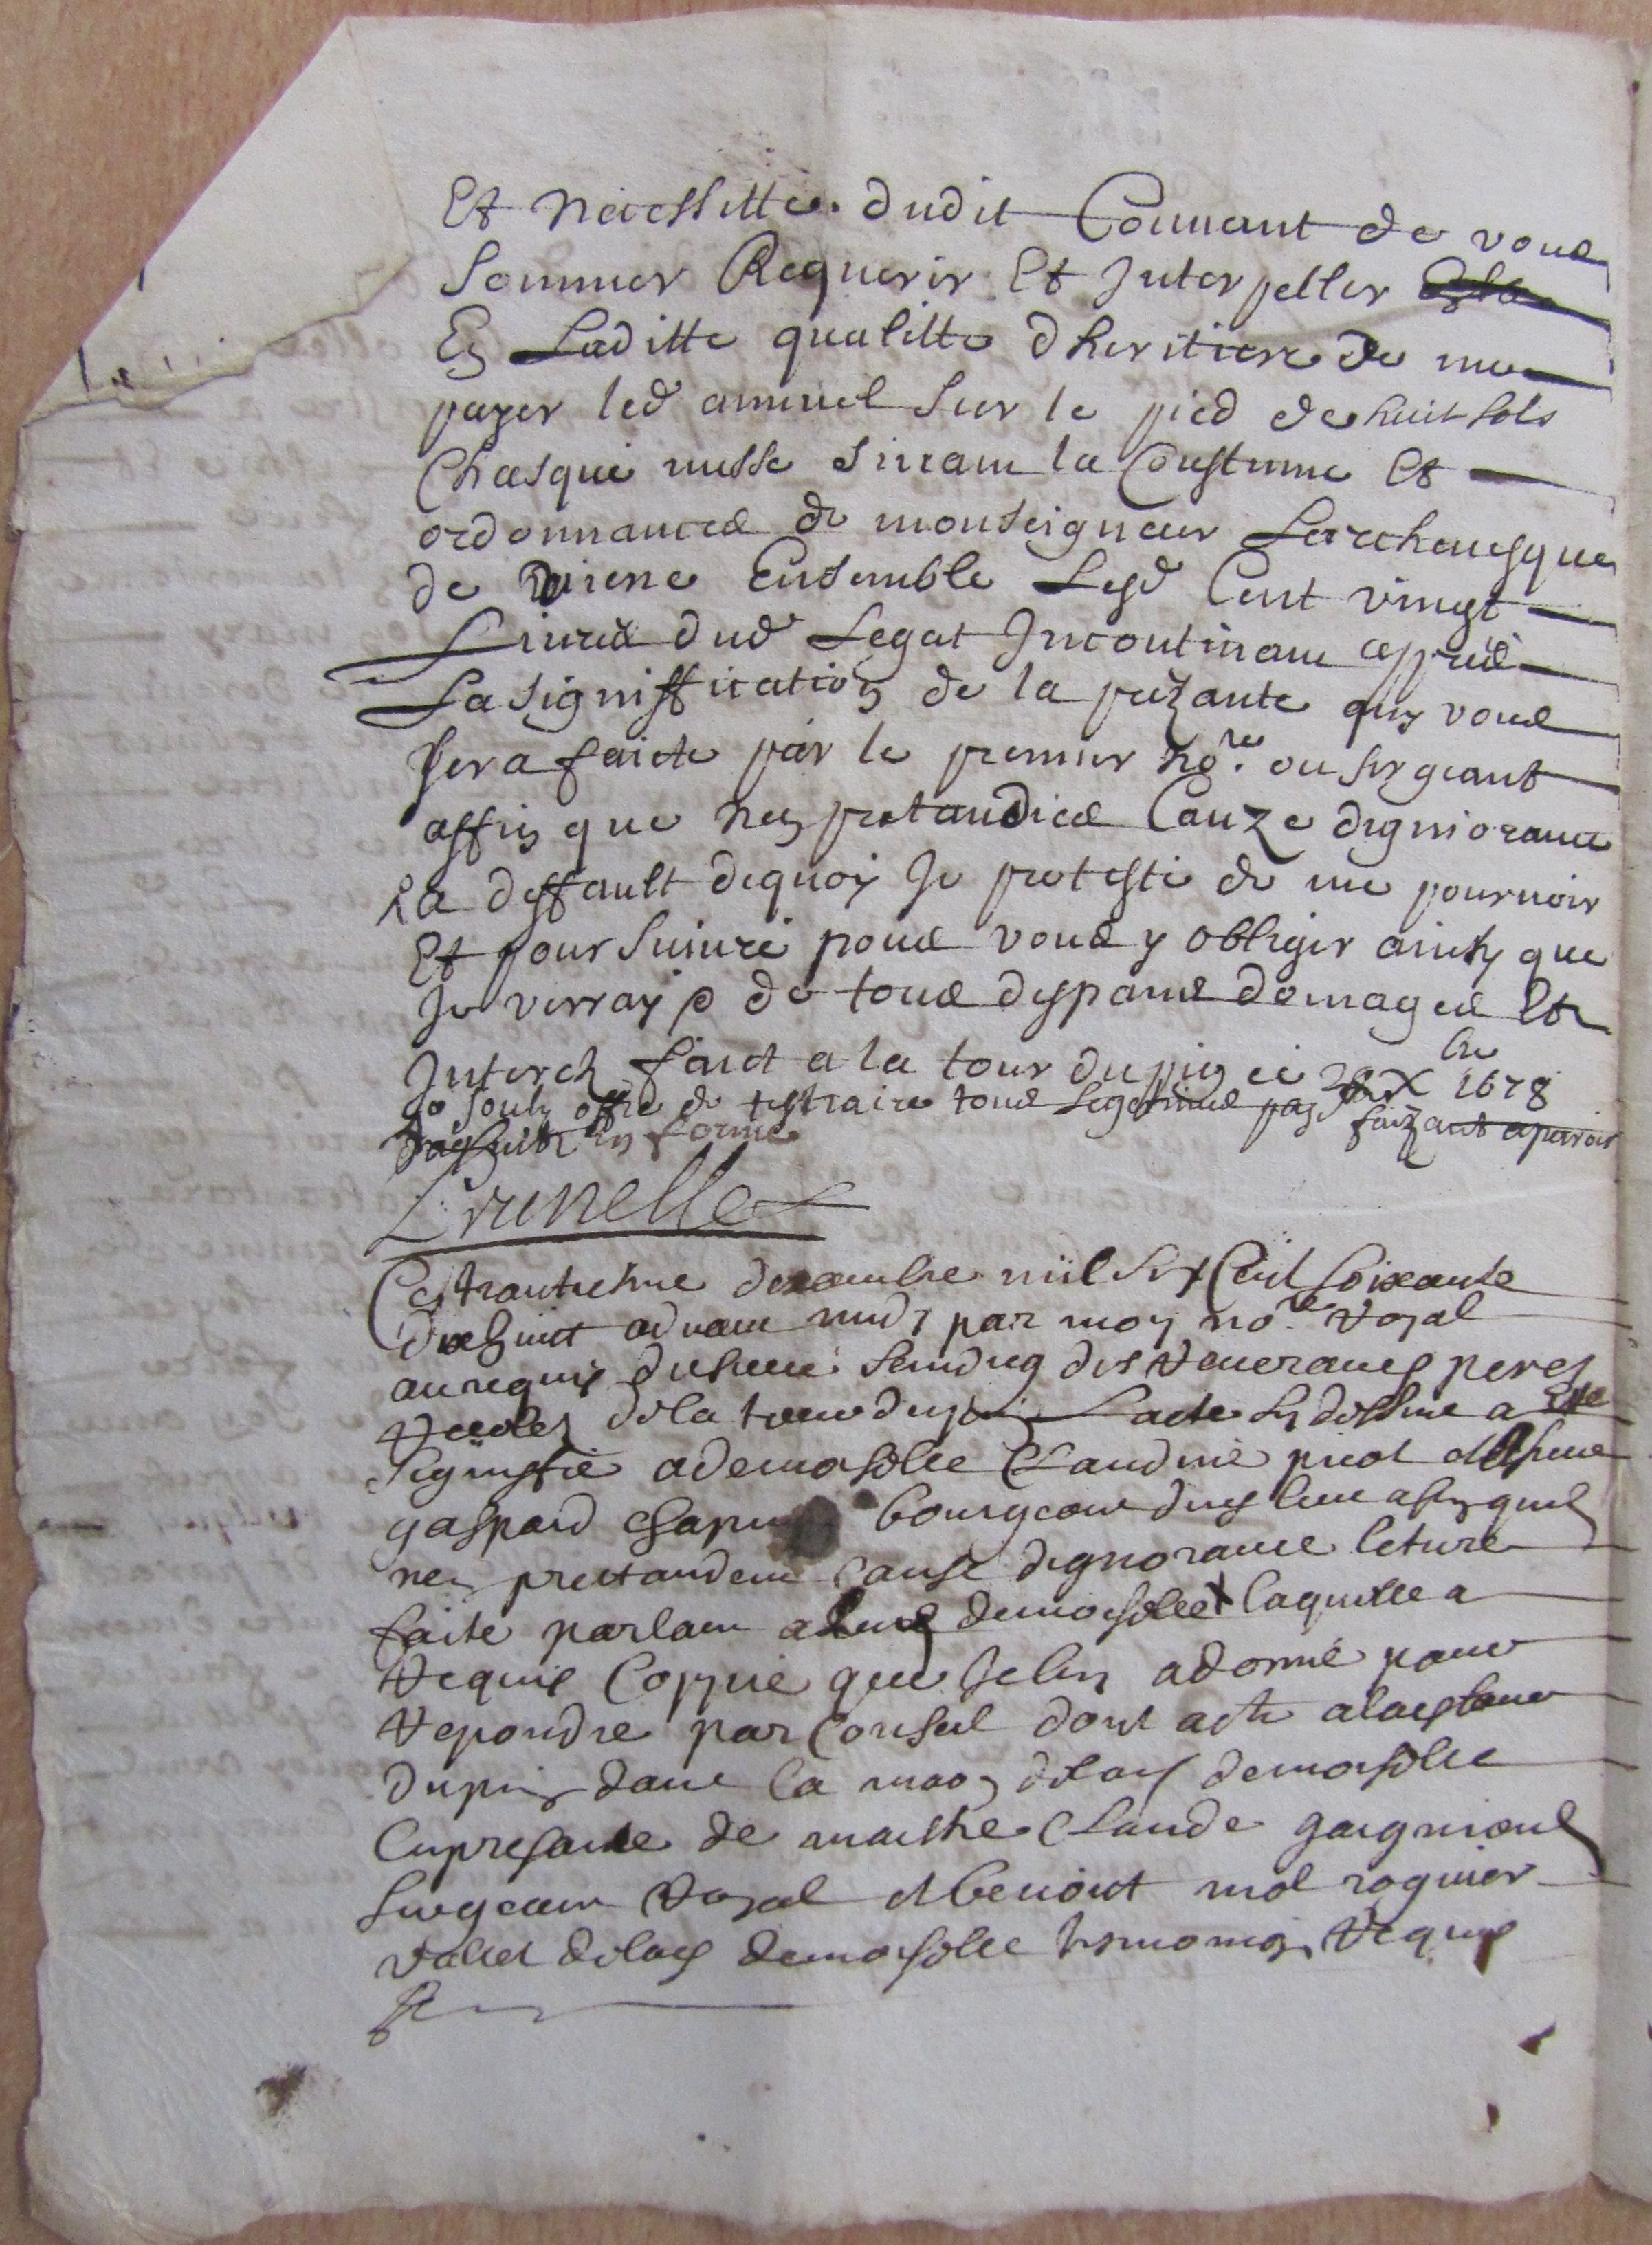 Et necessitté dudit Couuant de vous
Sommer Requerir Et Interpeller
En Laditte qualitté dheritiere de me
payer led annuel Sur le pied de huit sols
Chasque messe suiuant la Coustume Et
ordonnances de monseigneur Larcheuesque
de viene Ensemble Lesd Cent vingt
Liures dud Legat Incontinant apprès
La Signiffication de la prezante quy vous
sera faicte par le premier no.re ou sergeant
affin que nen pretandies Cauze digniorance
deffault dequoy Je proteste de me pouruoir
Et poursuiure pour vous y obliger ainsy que
Je verray & de tous despans domages Et
Interests faict a la tour du pin ce Xbre 1678
soubz offre de tous Legitimes faizant aparoir
en forme
Prunelle
Ce trantiesme decembre mil six Cent soixante
dix huict aduant midy par moy no.re royal
au requis du sieur sindicq des reuerans peres
de la tour du pin Lacte cy dessus a este
Signiffié a demoiselle Claudine picot et a sieur
gaspard chapuis bourgeois dud lieu afin quils
nen pretandent cause dignorance leture
faite parlant a lad demoiselle laquelle a
requis Coppie que je luy a donné pour
repondre par Conseil dont acte a lad tour
dupin dans la maison de lad demoiselle
En presance de maistre Claude gagnioud
sergeant royal et benoict rognier
vallet de lad demoiselle tesmoins requis